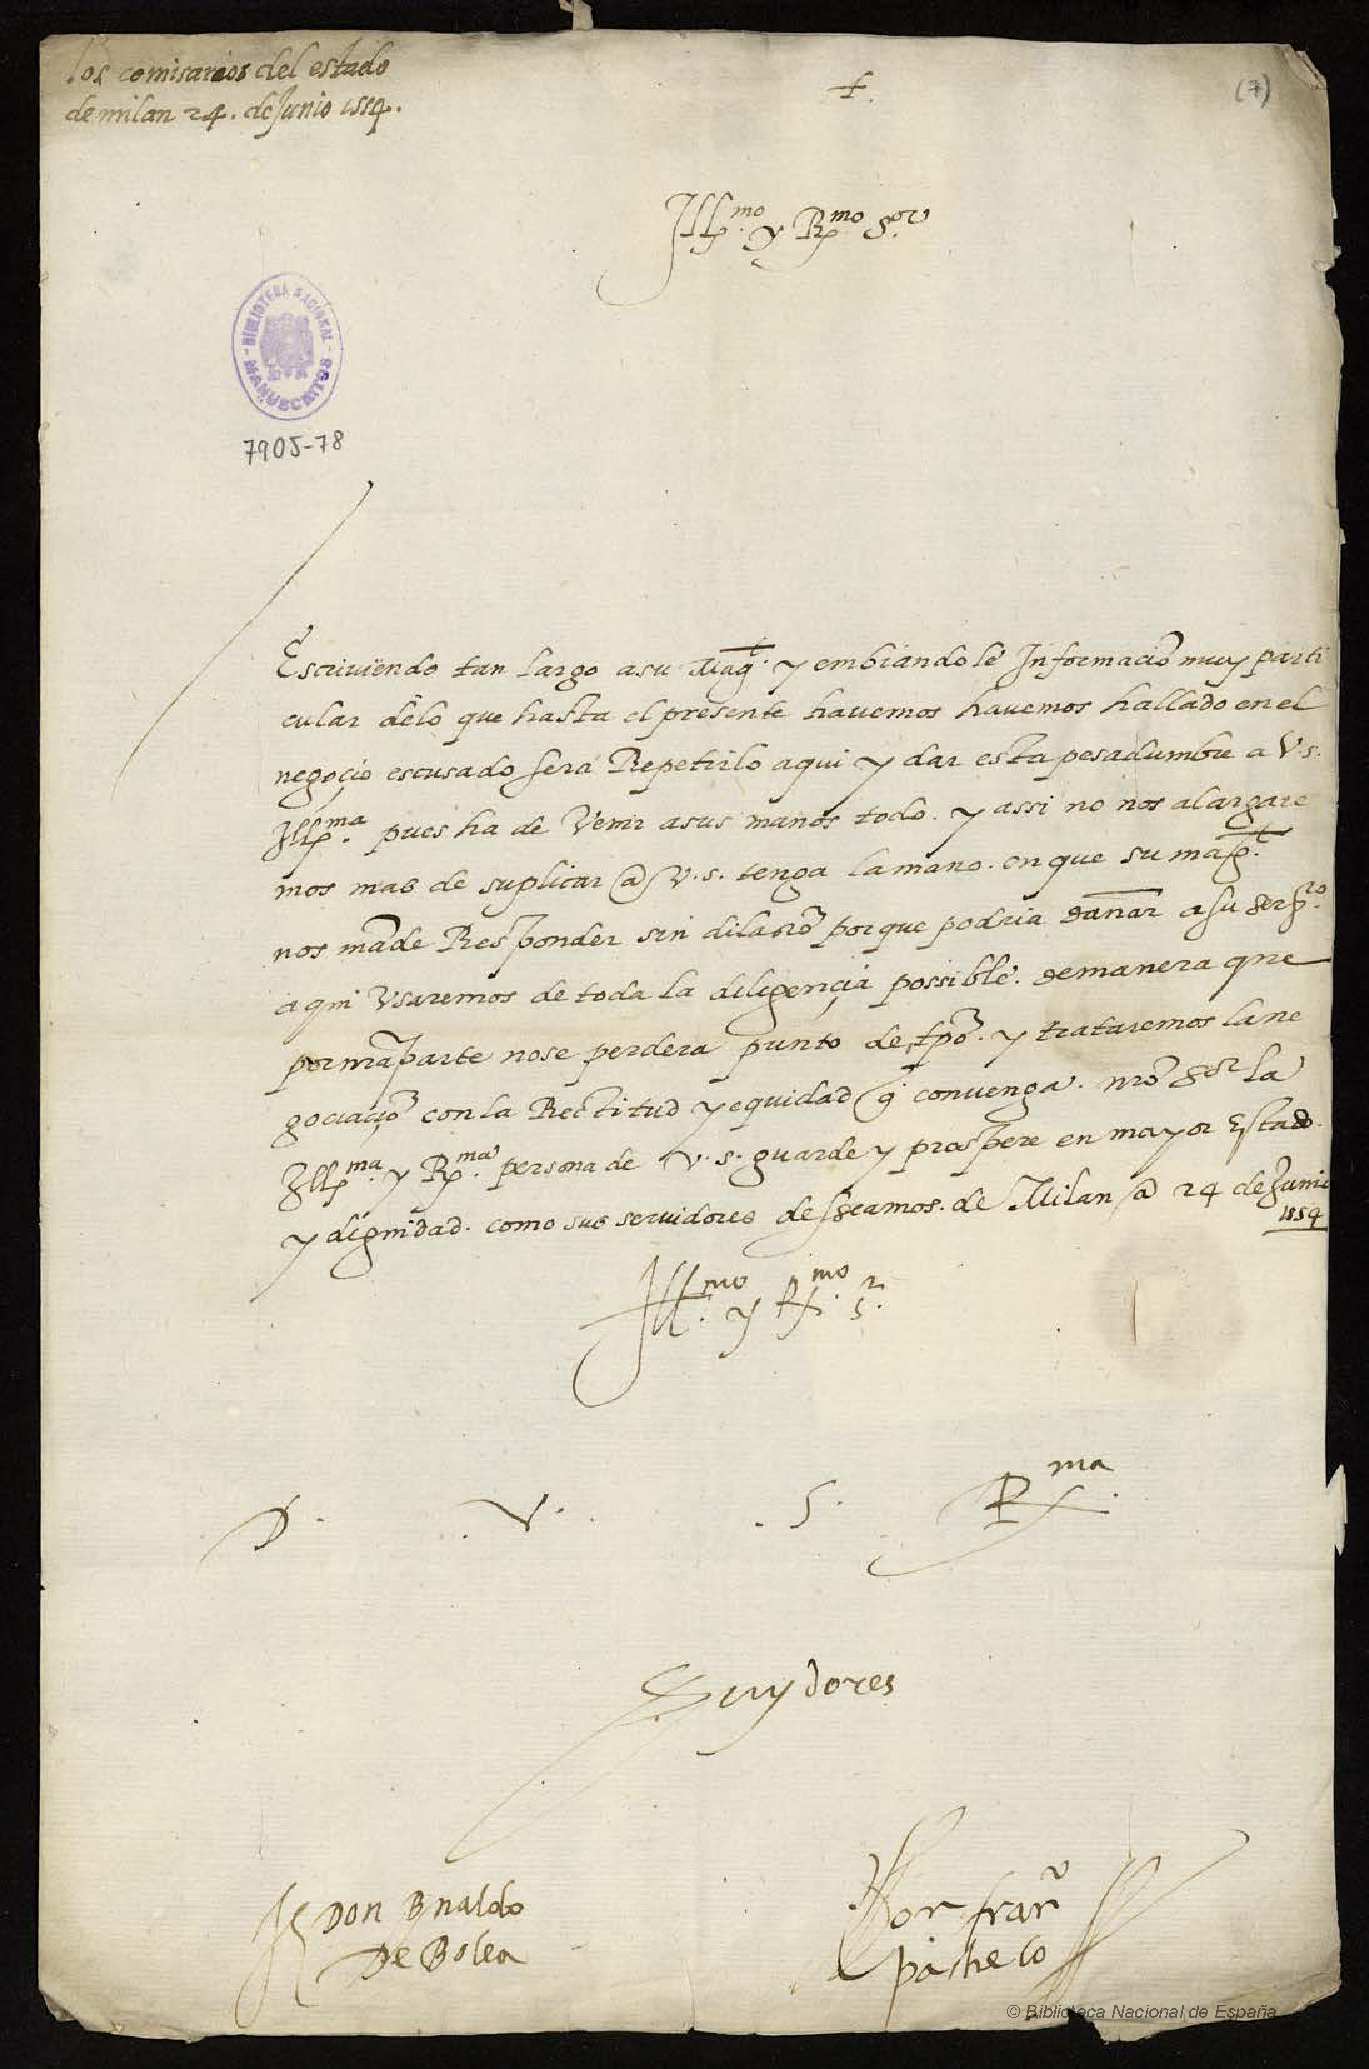 los comisarios del estado
de milan 24. de Junio 1554.
+.
(7)
Jllmo. y Rmo. Sor
BIBLIOTECA NACIONAL
MANUSCRITOS
7905-78
Escriuiendo tan largo a su Magt. y embiandole Informaciõ muy parti
cular delo que hasta el presente hauemos hauemos hallado en el
negoçio escusado sera Repetirlo aqui y dar esta pesadumbre a V. s.
Jllma. pues ha de Venir a sus manos todo. y assi no nos alargare
mos mas de suplicar a V. s. tenga la mano. en que su magt.
nos mãde Responder sin dilaciõ porque podria dañar a su seruo.
aqui Vsaremos de toda la diligençia possible. demanera que
por nra parte no se perdera punto de tpõ. y trataremos la ne
gociaçiõ con la Rectitud y equidad q̃ conuenga. nrõ Sor la
Jllma. y Rma. persona de V. s. guarde y prospere en mayor Estado.
y dignidad. como sus seruidores desseamos. de Milan a 24 de Junio
1554
Jllmo. y Rmo. Sr.
D. V. S. Rma.
Seruydores
Don Bnaldo
De Bolea
Por franco
pacheco
© Biblioteca Nacional de España